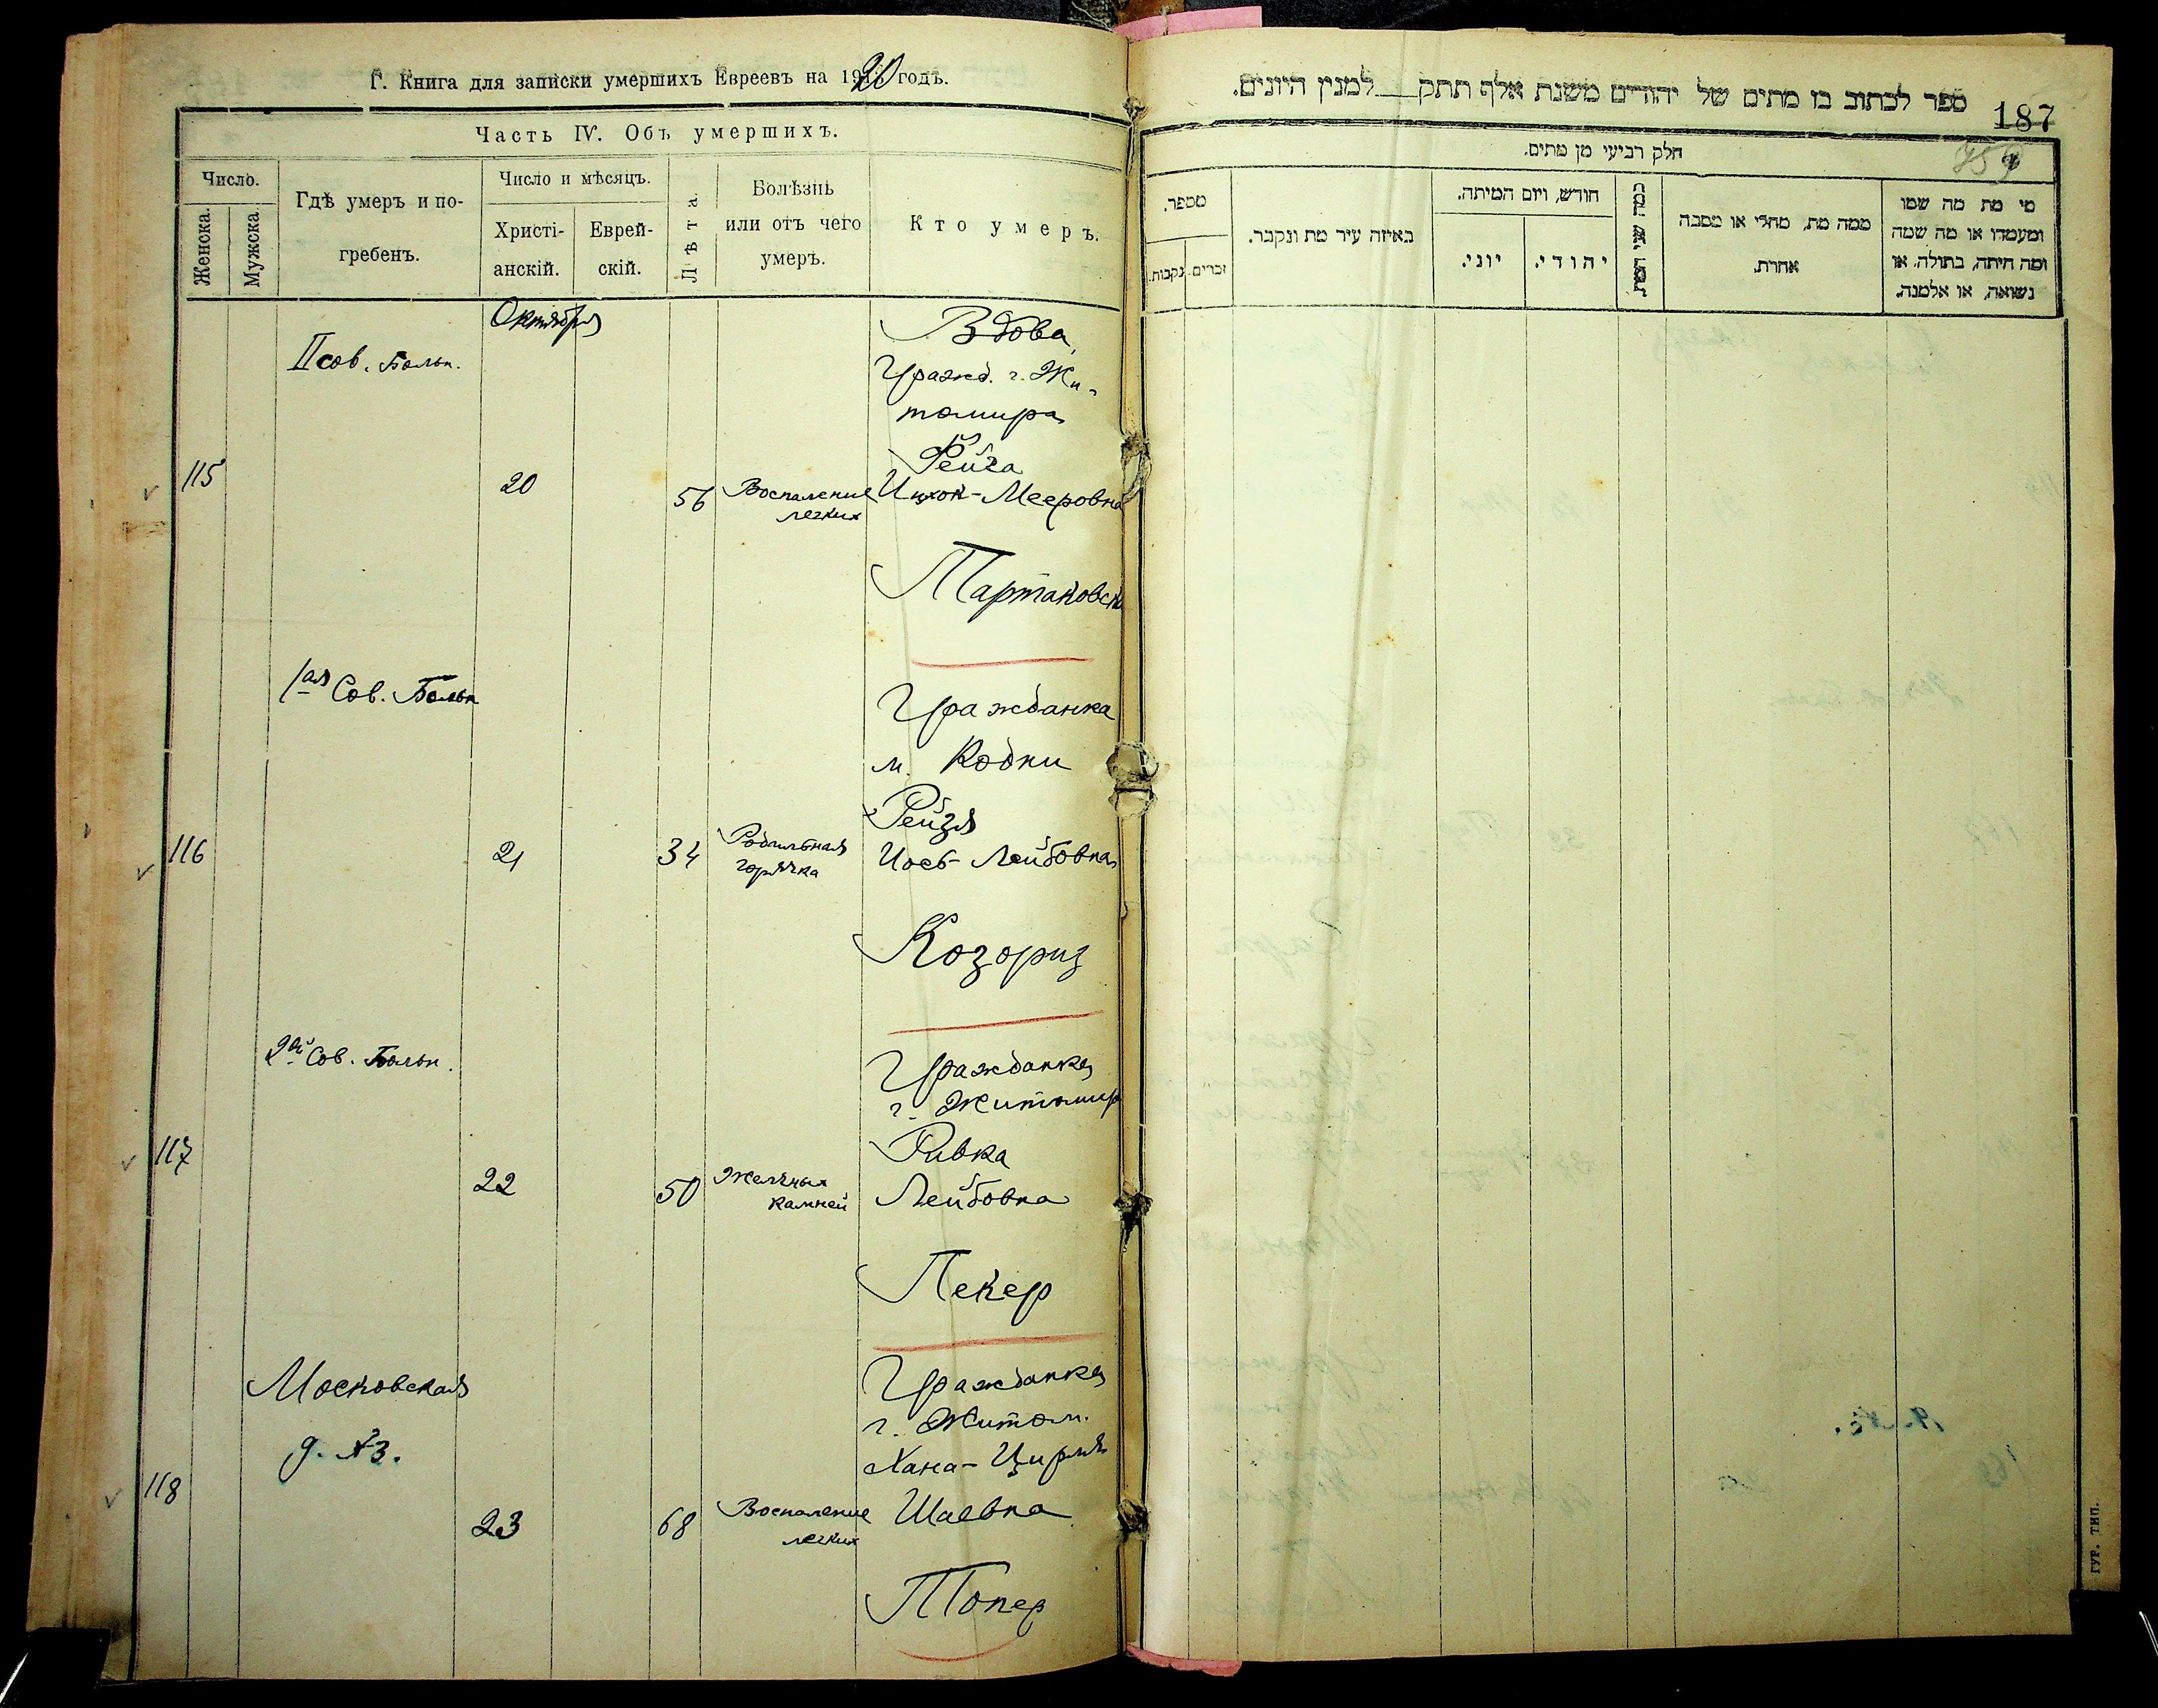 Г. Книга для записки умершихъ Евреевъ на 1920 годъ.
Часть IV. Объ умершихъ.
Число.
Женска.
Мужска.
Гдѣ умеръ и по-
гребенъ.
Число и мѣсяцъ.
Христі-
анскій.
Еврей-
скій.
Лѣта.
Болѣзнь
или отъ чего
умеръ.
Кто умеръ.
Октября
II сов. Больн.
115
20
56
Воспаление
легких
Вдова
Гражд. г. Жи-
томира
Фейга
Ицхок-Мееровна
1ая Сов. Больн
116
21
34
Родильная
горячка
Гражданка
м. Кодни
Рейзя
Иось-Лейбовна
Козориз
2ой Сов. Больн.
117
22
50
Желчных
камней
Гражданка
г. Житомир
Ривка
Лейбовна
Пекер
Московская
д. №3.
118
23
68
Воспаление
легких
Гражданка
г. Житом.
Хана-Цирля
Шаевна
187
ספר לכתוב בו מתים של יהודים משנת אלף תתק למנין היונים.
חלק רביעי מן מתים.
מספר.
נקבות.
זכרים.
באיזה עיר מת ונקבר.
חודש, ויום המיתה.
יוני.
יהודי.
כמה שני המת
ממה מת, מחלי או מסבה
אחרת.
מי מת מה שמו
ומעמדו או מה שמה
ומה היתה, בתולה, או
נשואה, או אלמנה.
ГУР. ТИП.